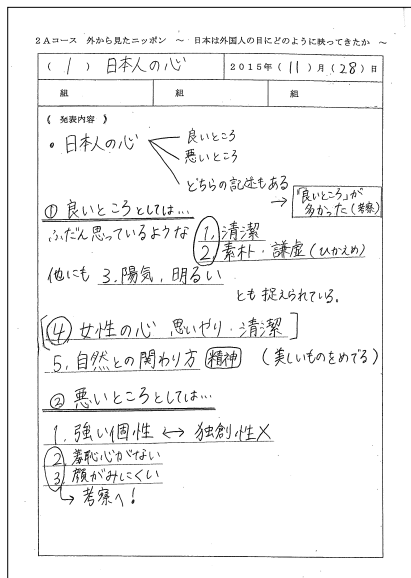 2Aコース 外から見たニッポン ~ 日本は外国人の目にどのように映ってきたか ~
( 1 ) 日本人の心 2015年(11)月(28)日
組 組 組
《 発表内容 》
・日本人の心
良いところ
悪いところ
どちらの記述もある
→ 「良いところ」が
多かった(考察)
① 良いところとしては…
ふだん思っているような 1. 清潔
2. 素朴・謙虚(ひかえめ)
他にも 3. 陽気、明るい
とも捉えられている。
[④ 女性の心 思いやり・清潔]
5. 自然との関わり方 精神 (美しいものをめでる)
② 悪いところとしては…
1. 強い個性 ↔ 独創性×
2. 羞恥心がない
3. 顔がみにくい
→ 考察へ!